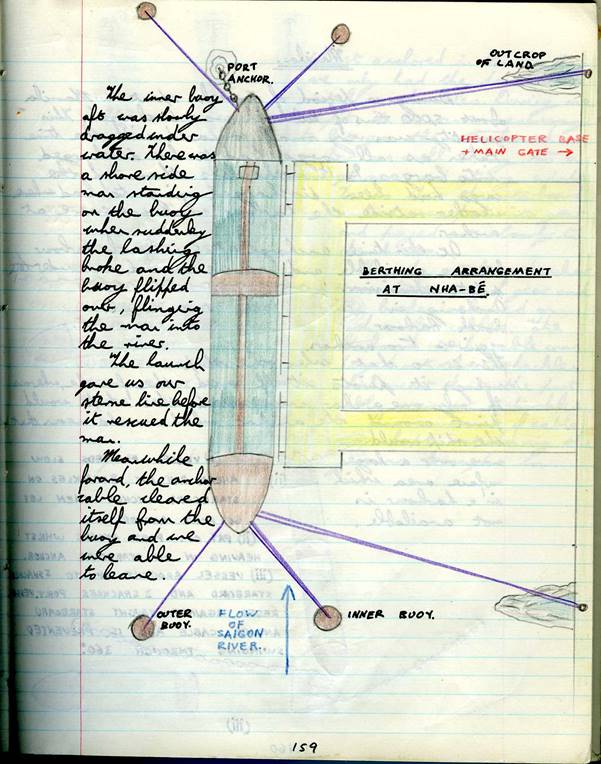 PORT
ANCHOR.
OUTCROP
OF LAND.
HELICOPTER BASE
+ MAIN GATE →
The inner buoy
aft was slowly
dragged under
water. There was
a shore side
man standing
on the buoy
when suddenly
the lashing
broke and the
buoy flipped
over, flinging
the man into
the river.
The launch
gave us our
stern line before
it rescued the
man.
Meanwhile
forward, the anchor
cable cleared
itself from the
buoy and we
were able
to leave.
BERTHING ARRANGEMENT
AT NHA-BÉ.
OUTER
BUOY.
FLOW
OF
SAIGON
RIVER.
INNER BUOY.
159